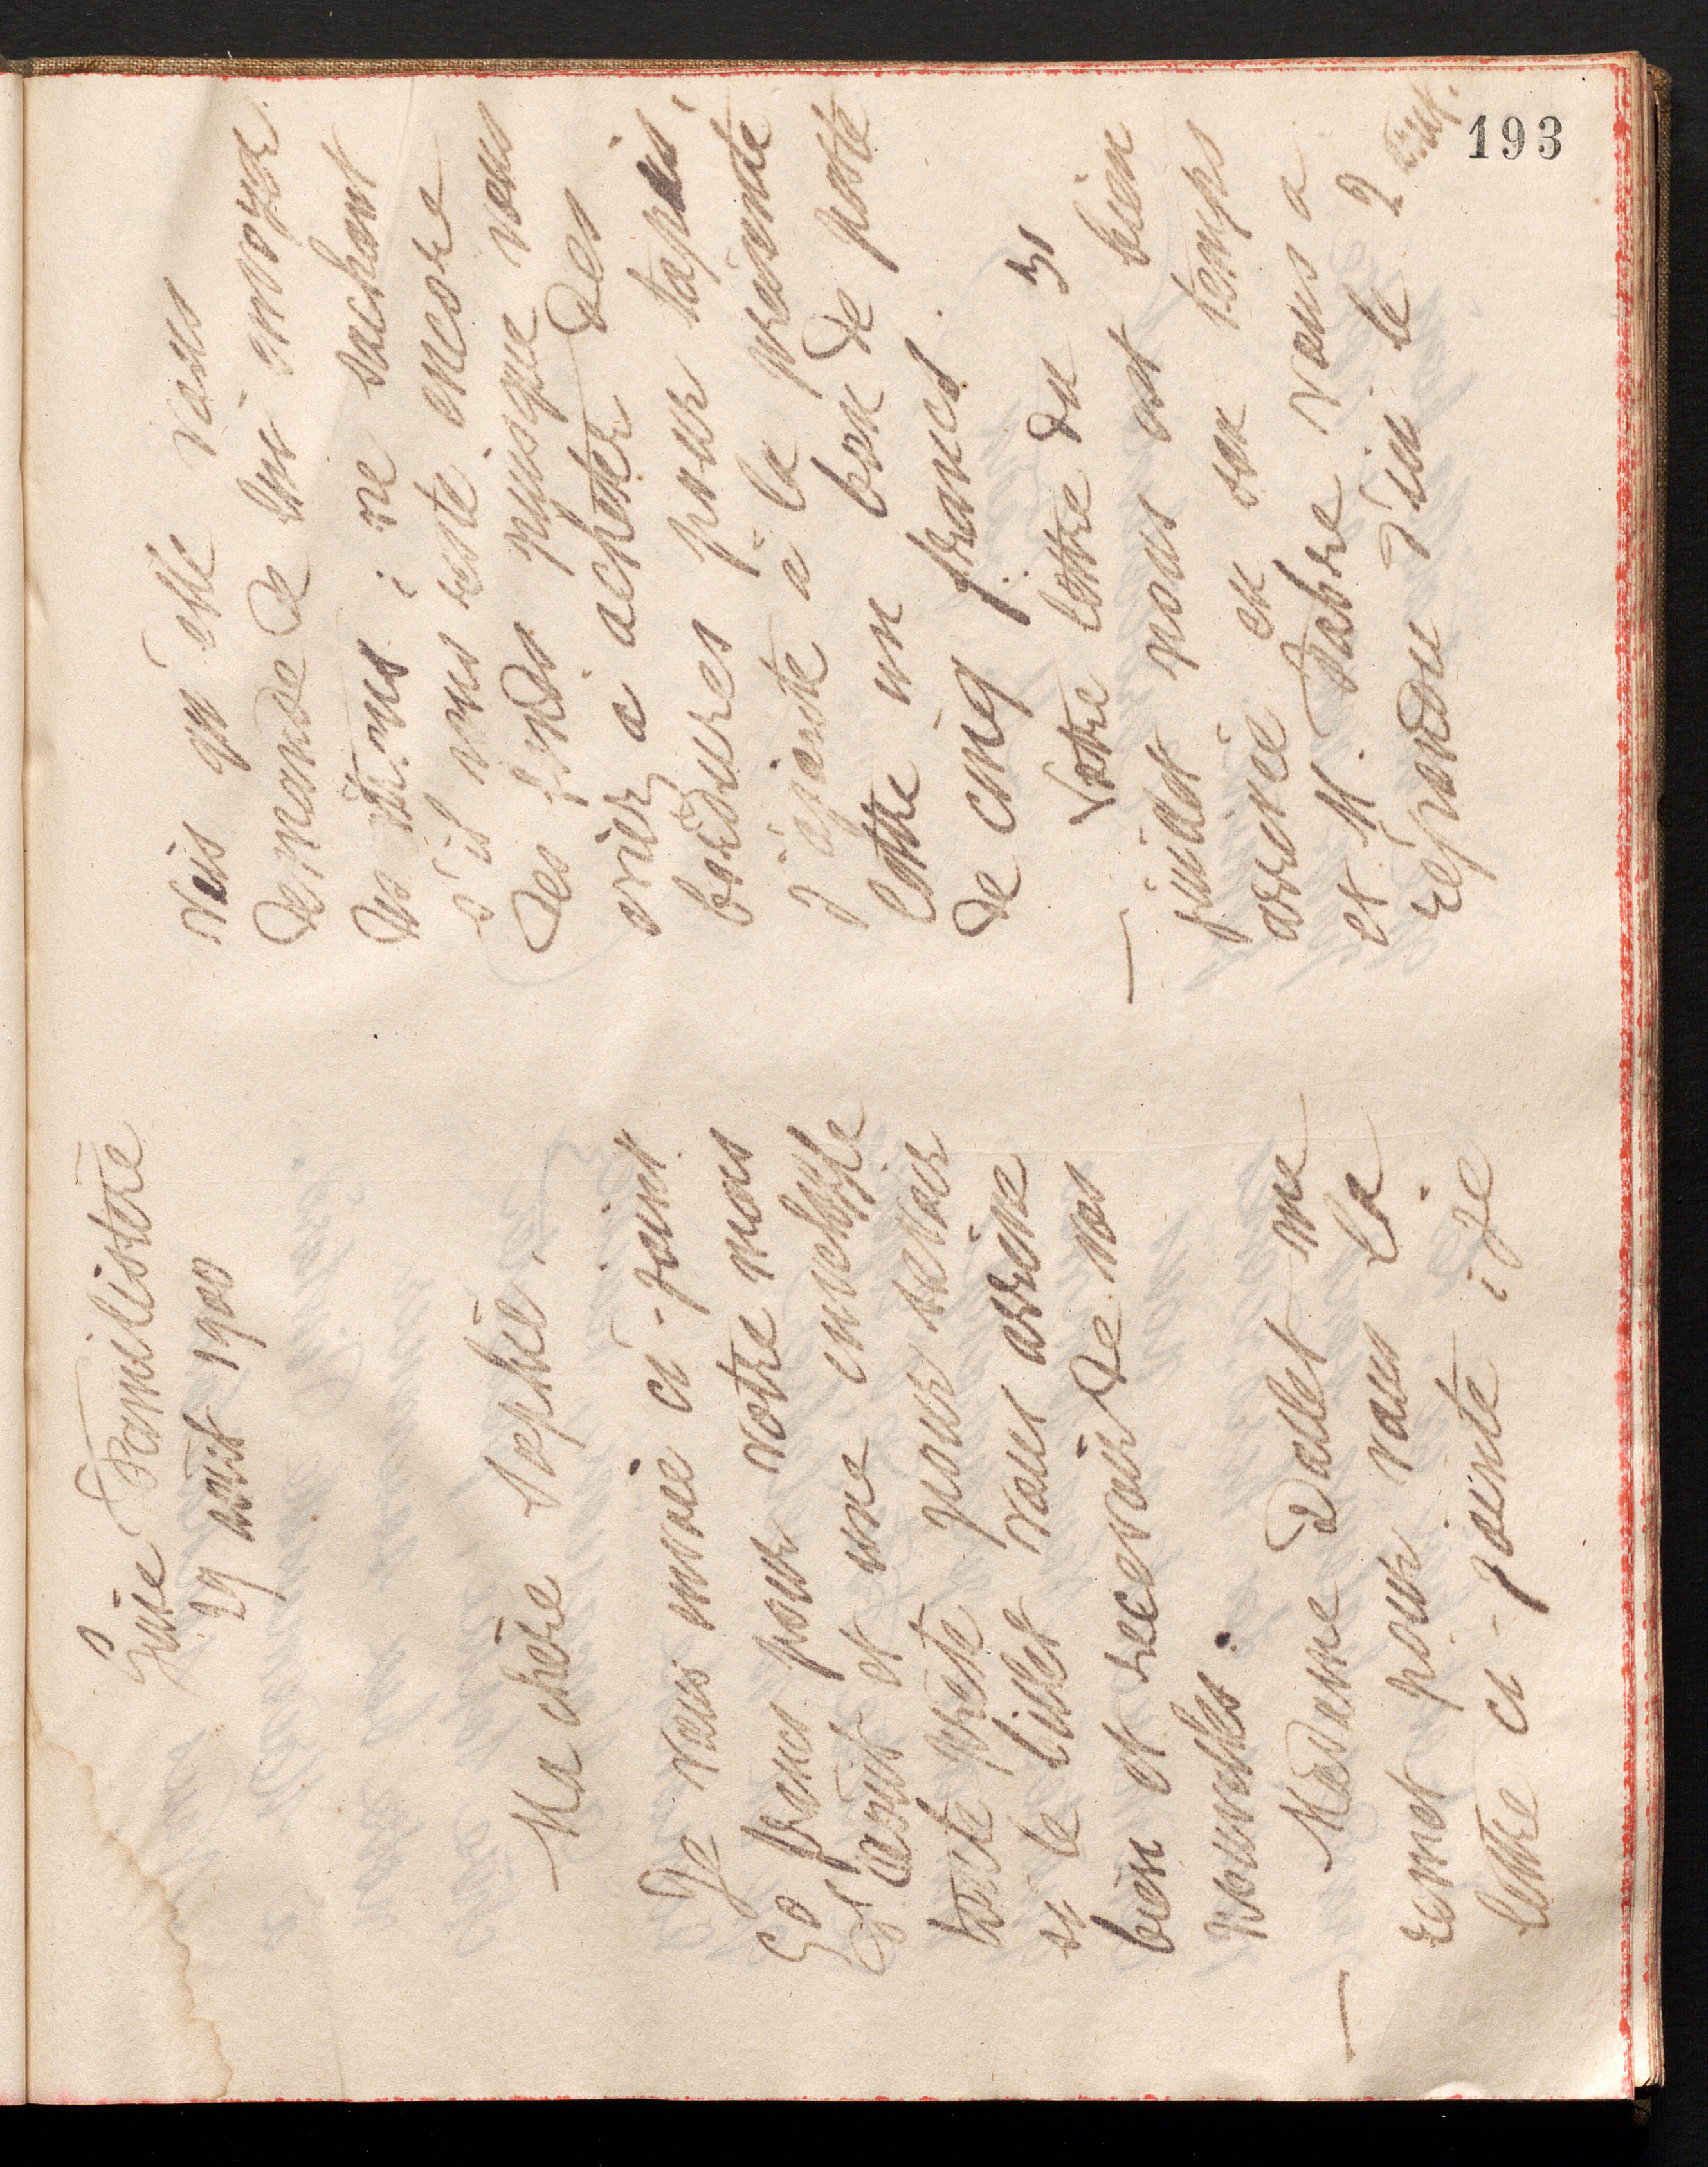 193
Guise Familistère
29 août 1900
Ma chère Sophie,
Je vous envoie ci-joint
50 francs pour votre mois
d'août et une enveloppe
toute prête pour savoir
si le billet vous arrive
bien et recevoir de vos
nouvelles.
Madame Dallet me
remet pour vous la
lettre ci-jointe ; je
vois qu'elle vous
demande de lui envoyer
; ne sachant
s'il vous reste encore
des fonds puisque vous
aviez à acheter des
bordures pour tapis,
j'ajoute à la présente
lettre un bon de poste
de cinq francs.
Votre lettre du 31
juillet nous est bien
arrivée en son temps
et M. Fabre vous a
répondu d'ici le 2 août.